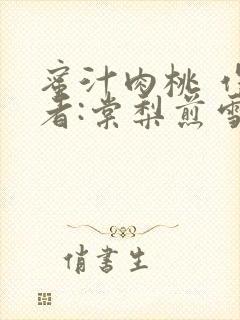 蜜汁肉桃 作
者:棠梨煎雪
俏書生